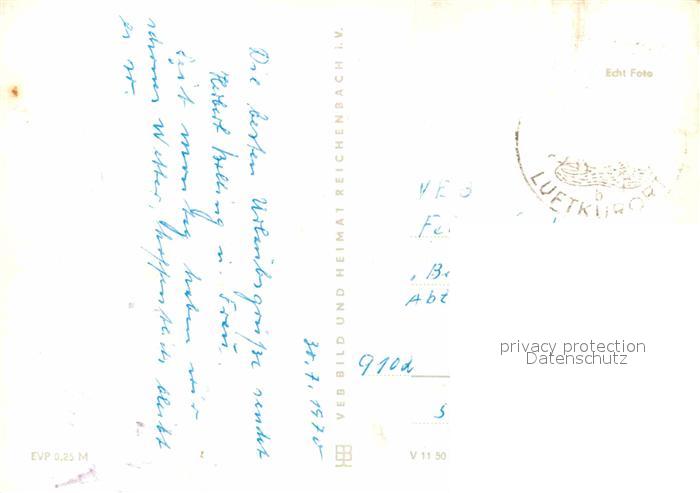 30.7.1970
Die besten Urlaubsgrüße sendet
Herbert u. Frau.
Seit Montag haben wir
schönes Wetter, hoffentlich bleibt
es so.
VEB BILD UND HEIMAT REICHENBACH I. V.
EVP 0,25 M
V 11 50
Echt Foto
LUFTKURORT
b
VEB
Fei
"Be
Abt
910
S
privacy protection
Datenschutz